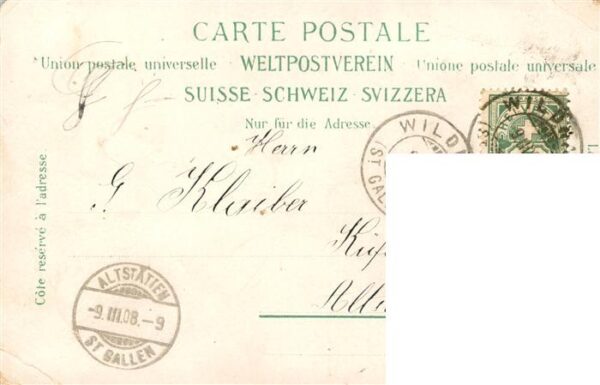 CARTE POSTALE
Union postale universelle · WELTPOSTVEREIN · Unione postale universale
SUISSE·SCHWEIZ·SVIZZERA
Nur für die Adresse
Côte reservé à l'adresse.
Herrn
G. Klaiber
WILD
ST GAL
WILD
ALTSTÄTTEN
-9.III.08.-9
ST GALLEN